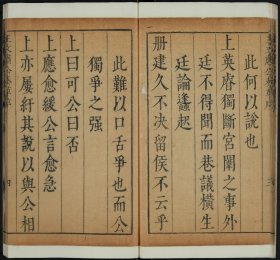 此何以說也
上英睿獨斷宮闈之事外
廷不得聞而巷議橫生
廷論蠭起
冊建久不决留侯不云乎
此難以口舌爭也而公
獨爭之强
上曰可公曰否
上應愈緩公言愈急
上亦屢紆其說以與公相